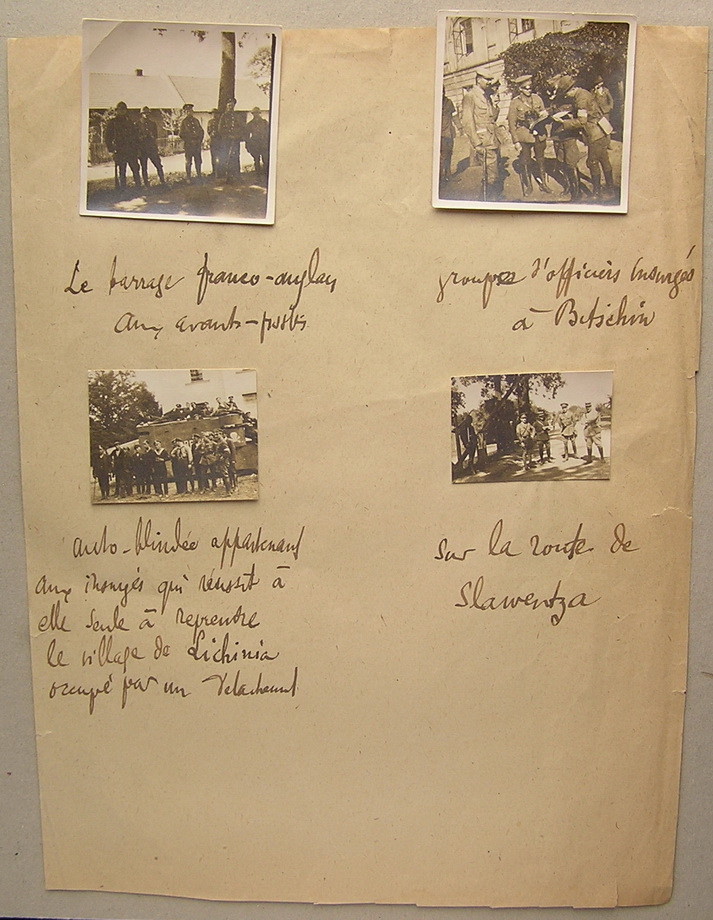 Le barrage franco-anglais
aux avants-postes
groupes d'officiers insurgés
à Bitschin
auto-blindée appartenant
aux insurgés qui réussit à
elle seule à reprendre
le village de Lichinia
occupé par un détachement
sur la route de
Slawentza